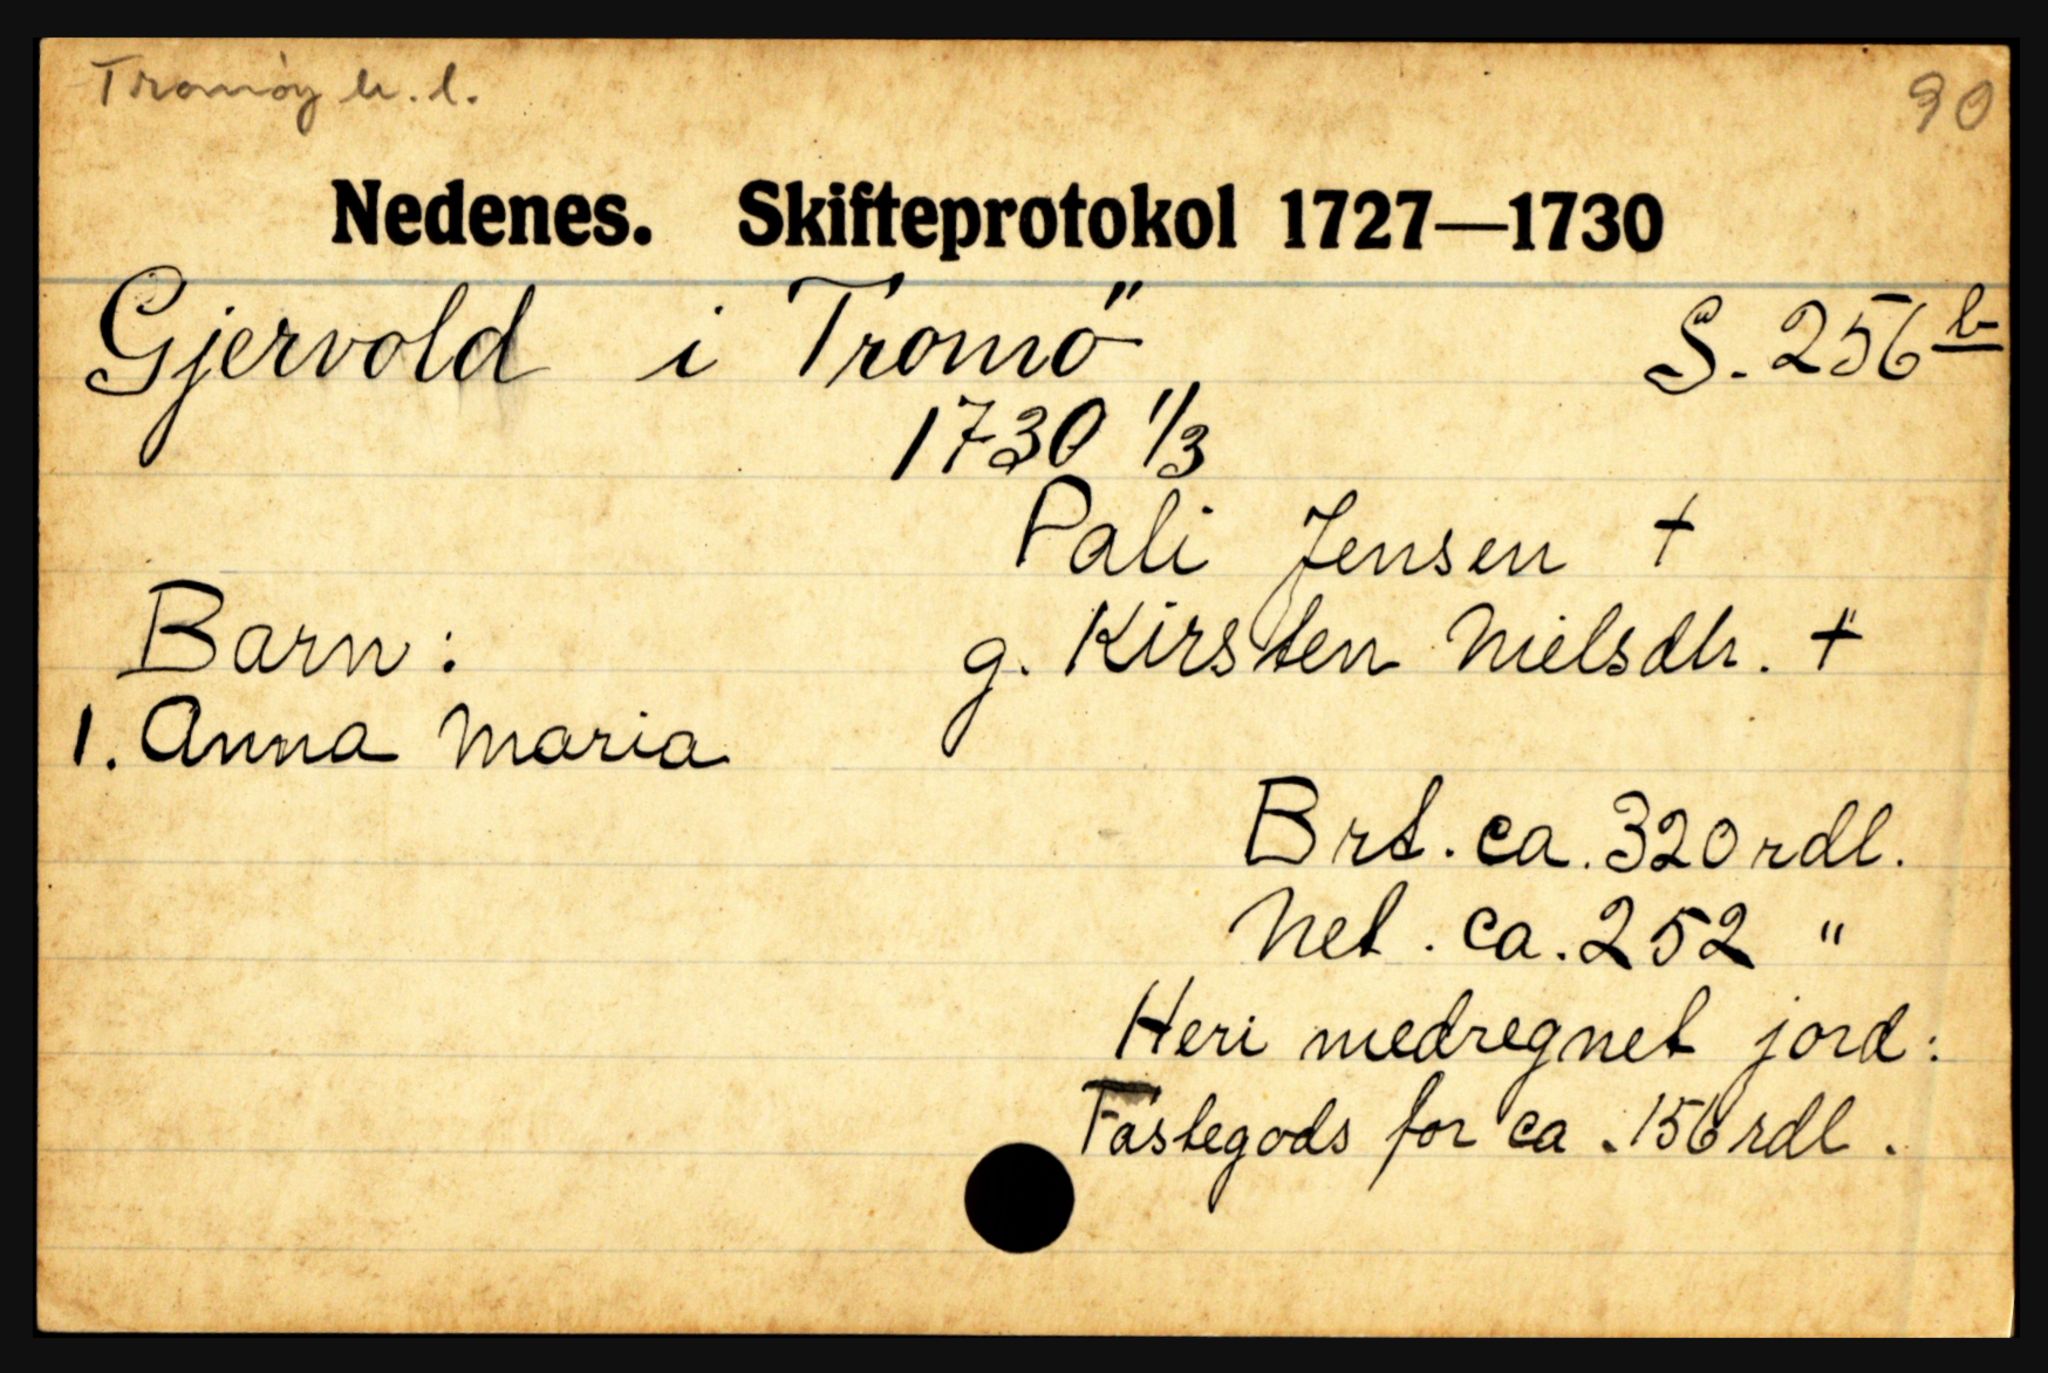 Tromøy h.l.
90
Nedenes. Skifteprotokol 1727—1730
Gjervold i Tromö S. 256 b
1730 1/3
Pali Jensen +
Barn: g. Kirsten Nielsdtr. +
1. Anna Maria
Brt. ca. 320 rdl.
Net. ca. 252 "
Heri medregnet jord:
Fästegods for ca. 156 rdl.